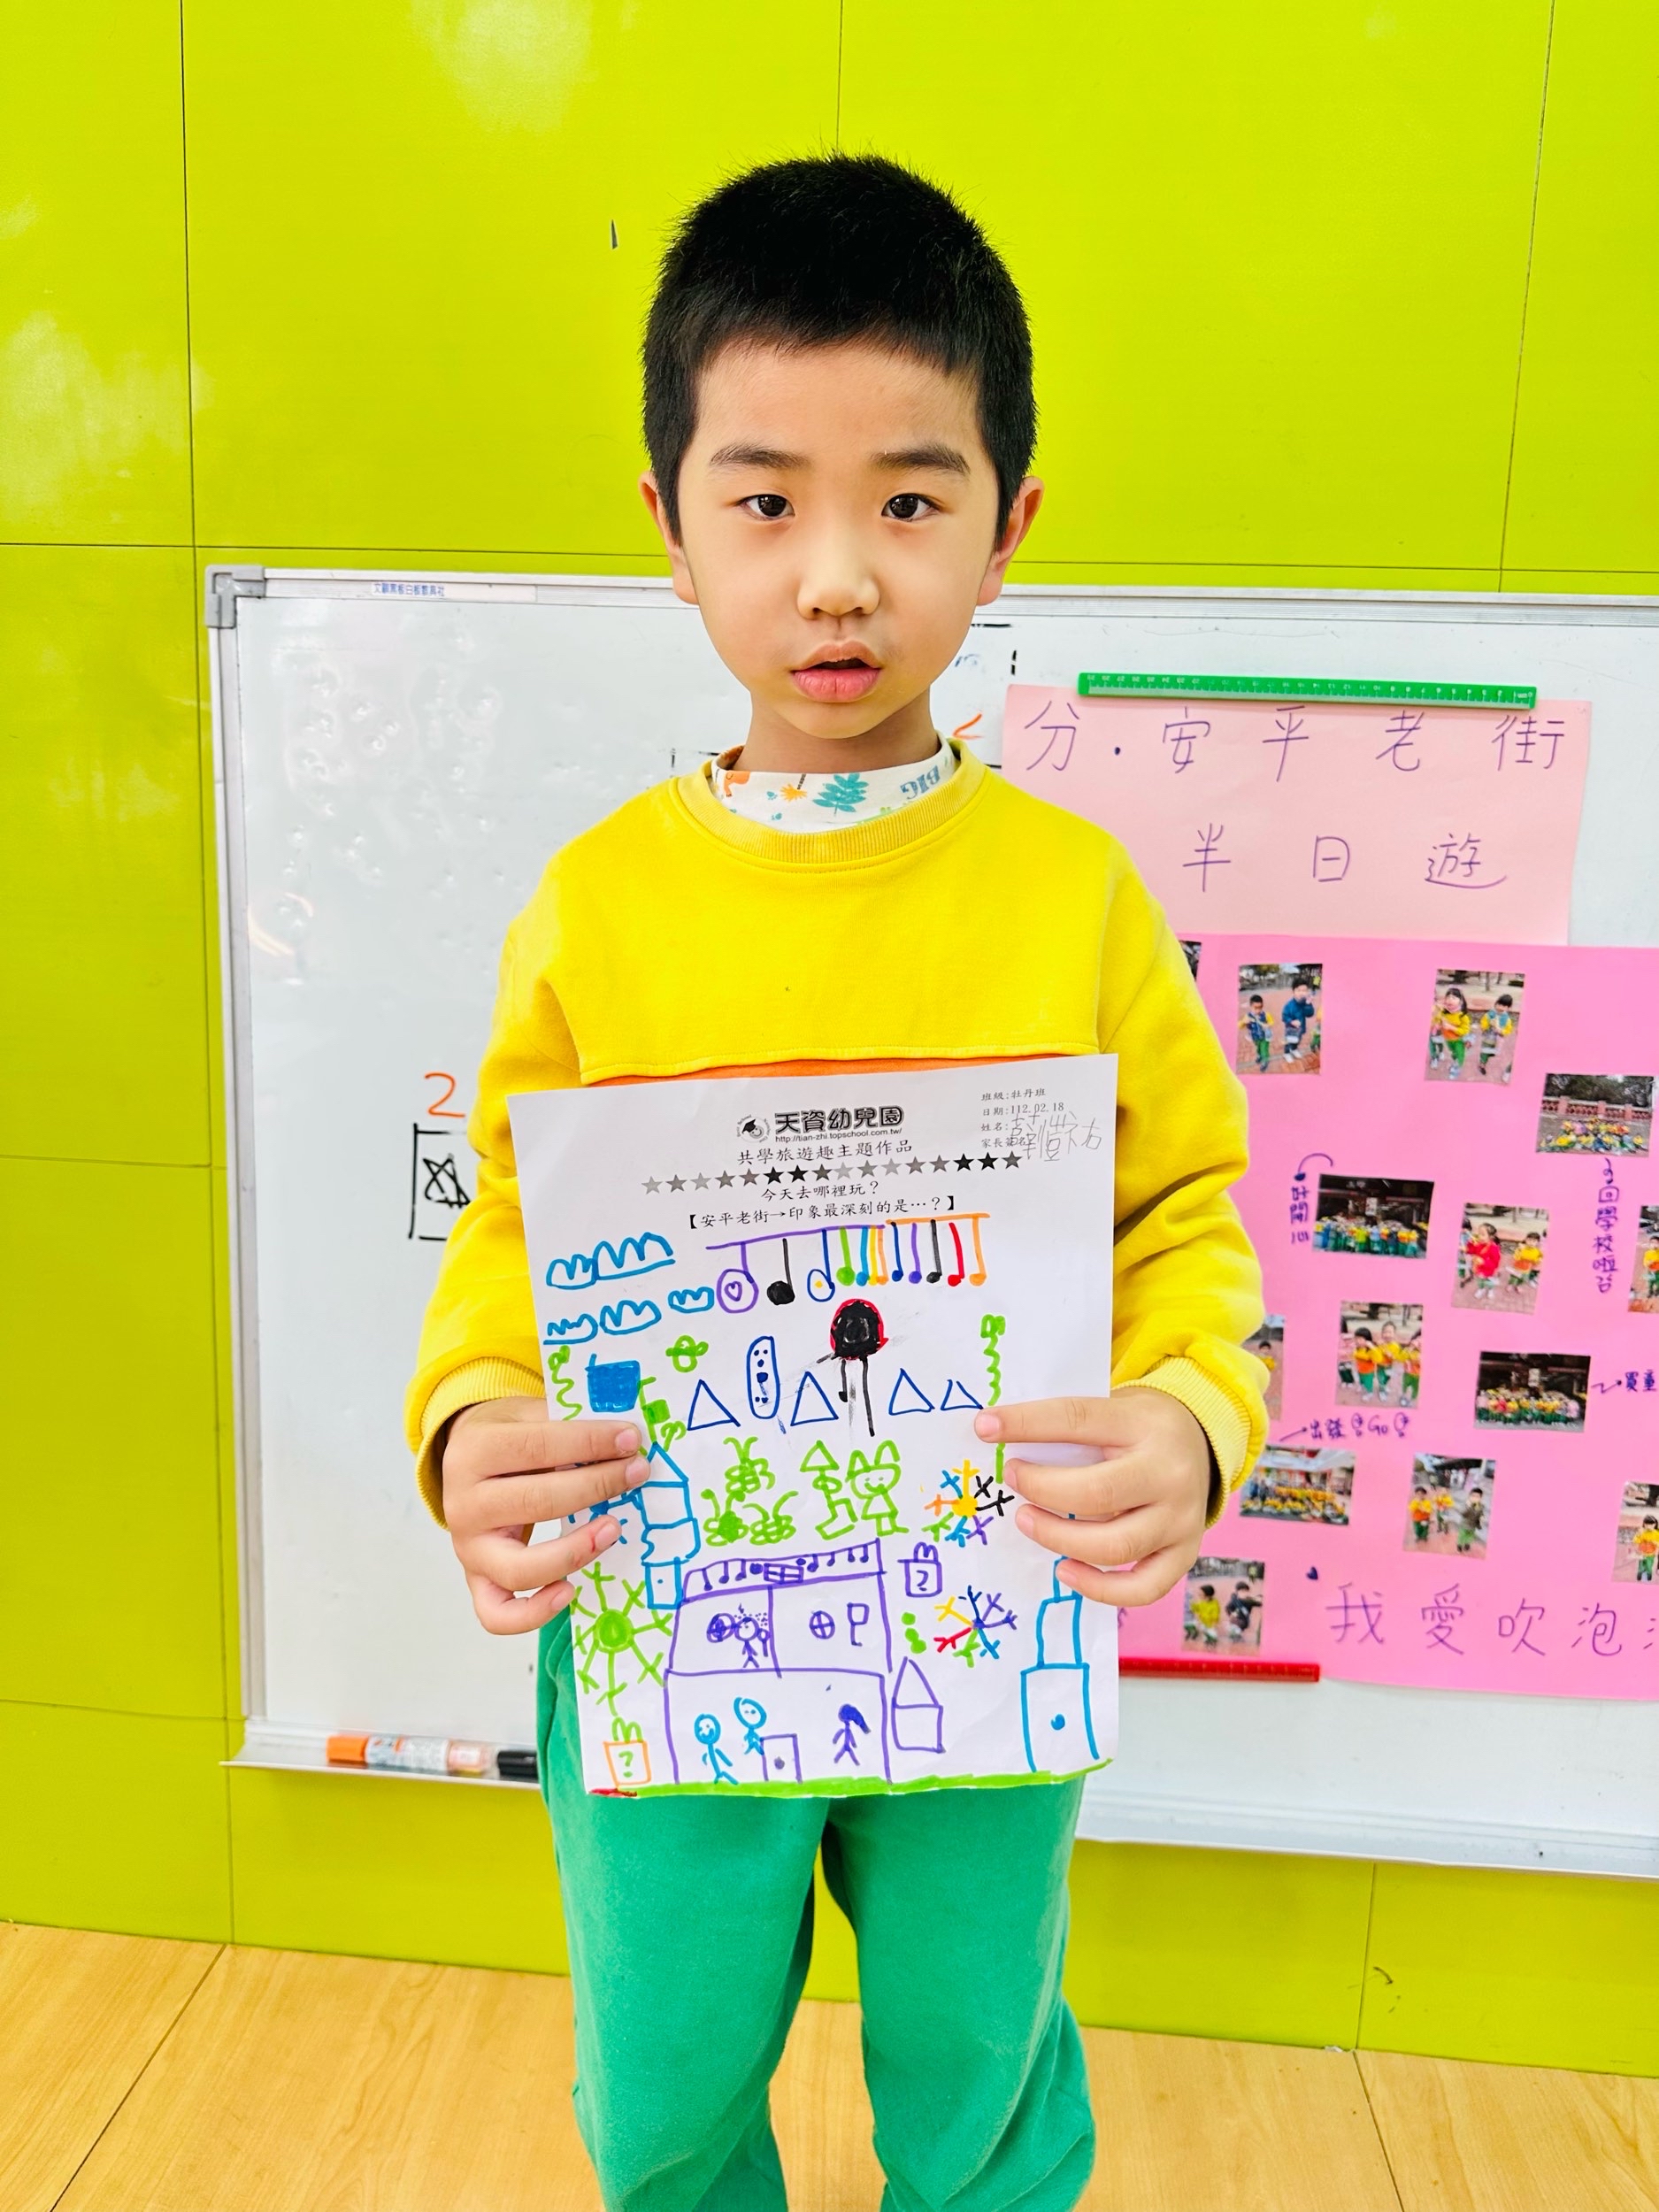 文顧黑板白板教具社
分．安平老街
半日遊
2
BIG
班級:牡丹班
日期:112.02.18
姓名:
家長簽名:
天資幼兒園
http://tian-zhi.topschool.com.tw/
共學旅遊趣主題作品
★★★★★★★★★★★★★★★
今天去哪裡玩？
【安平老街→印象最深刻的是…？】
?
?
好開心
回學校啦
出發 Go
買童
我愛吹泡